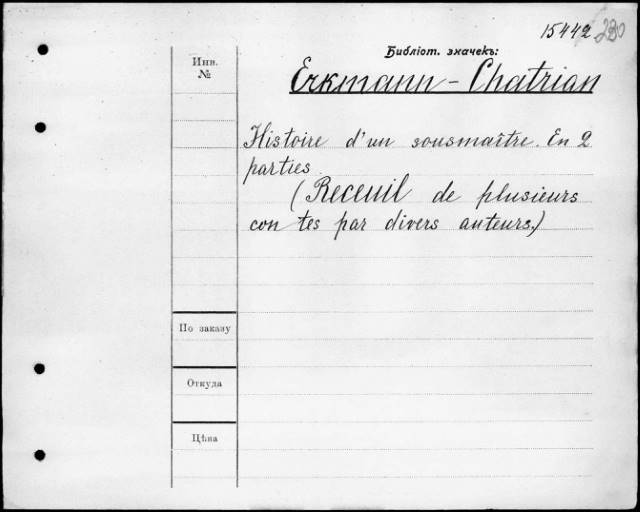 15442 230
Библіот. значекъ:
Инв.
№
Erkmann - Chatrian
Histoire d'un sousmaître. En 2
parties.
(Receuil de plusieurs
contes par divers auteurs.)
По заказу
Откуда
Цѣна